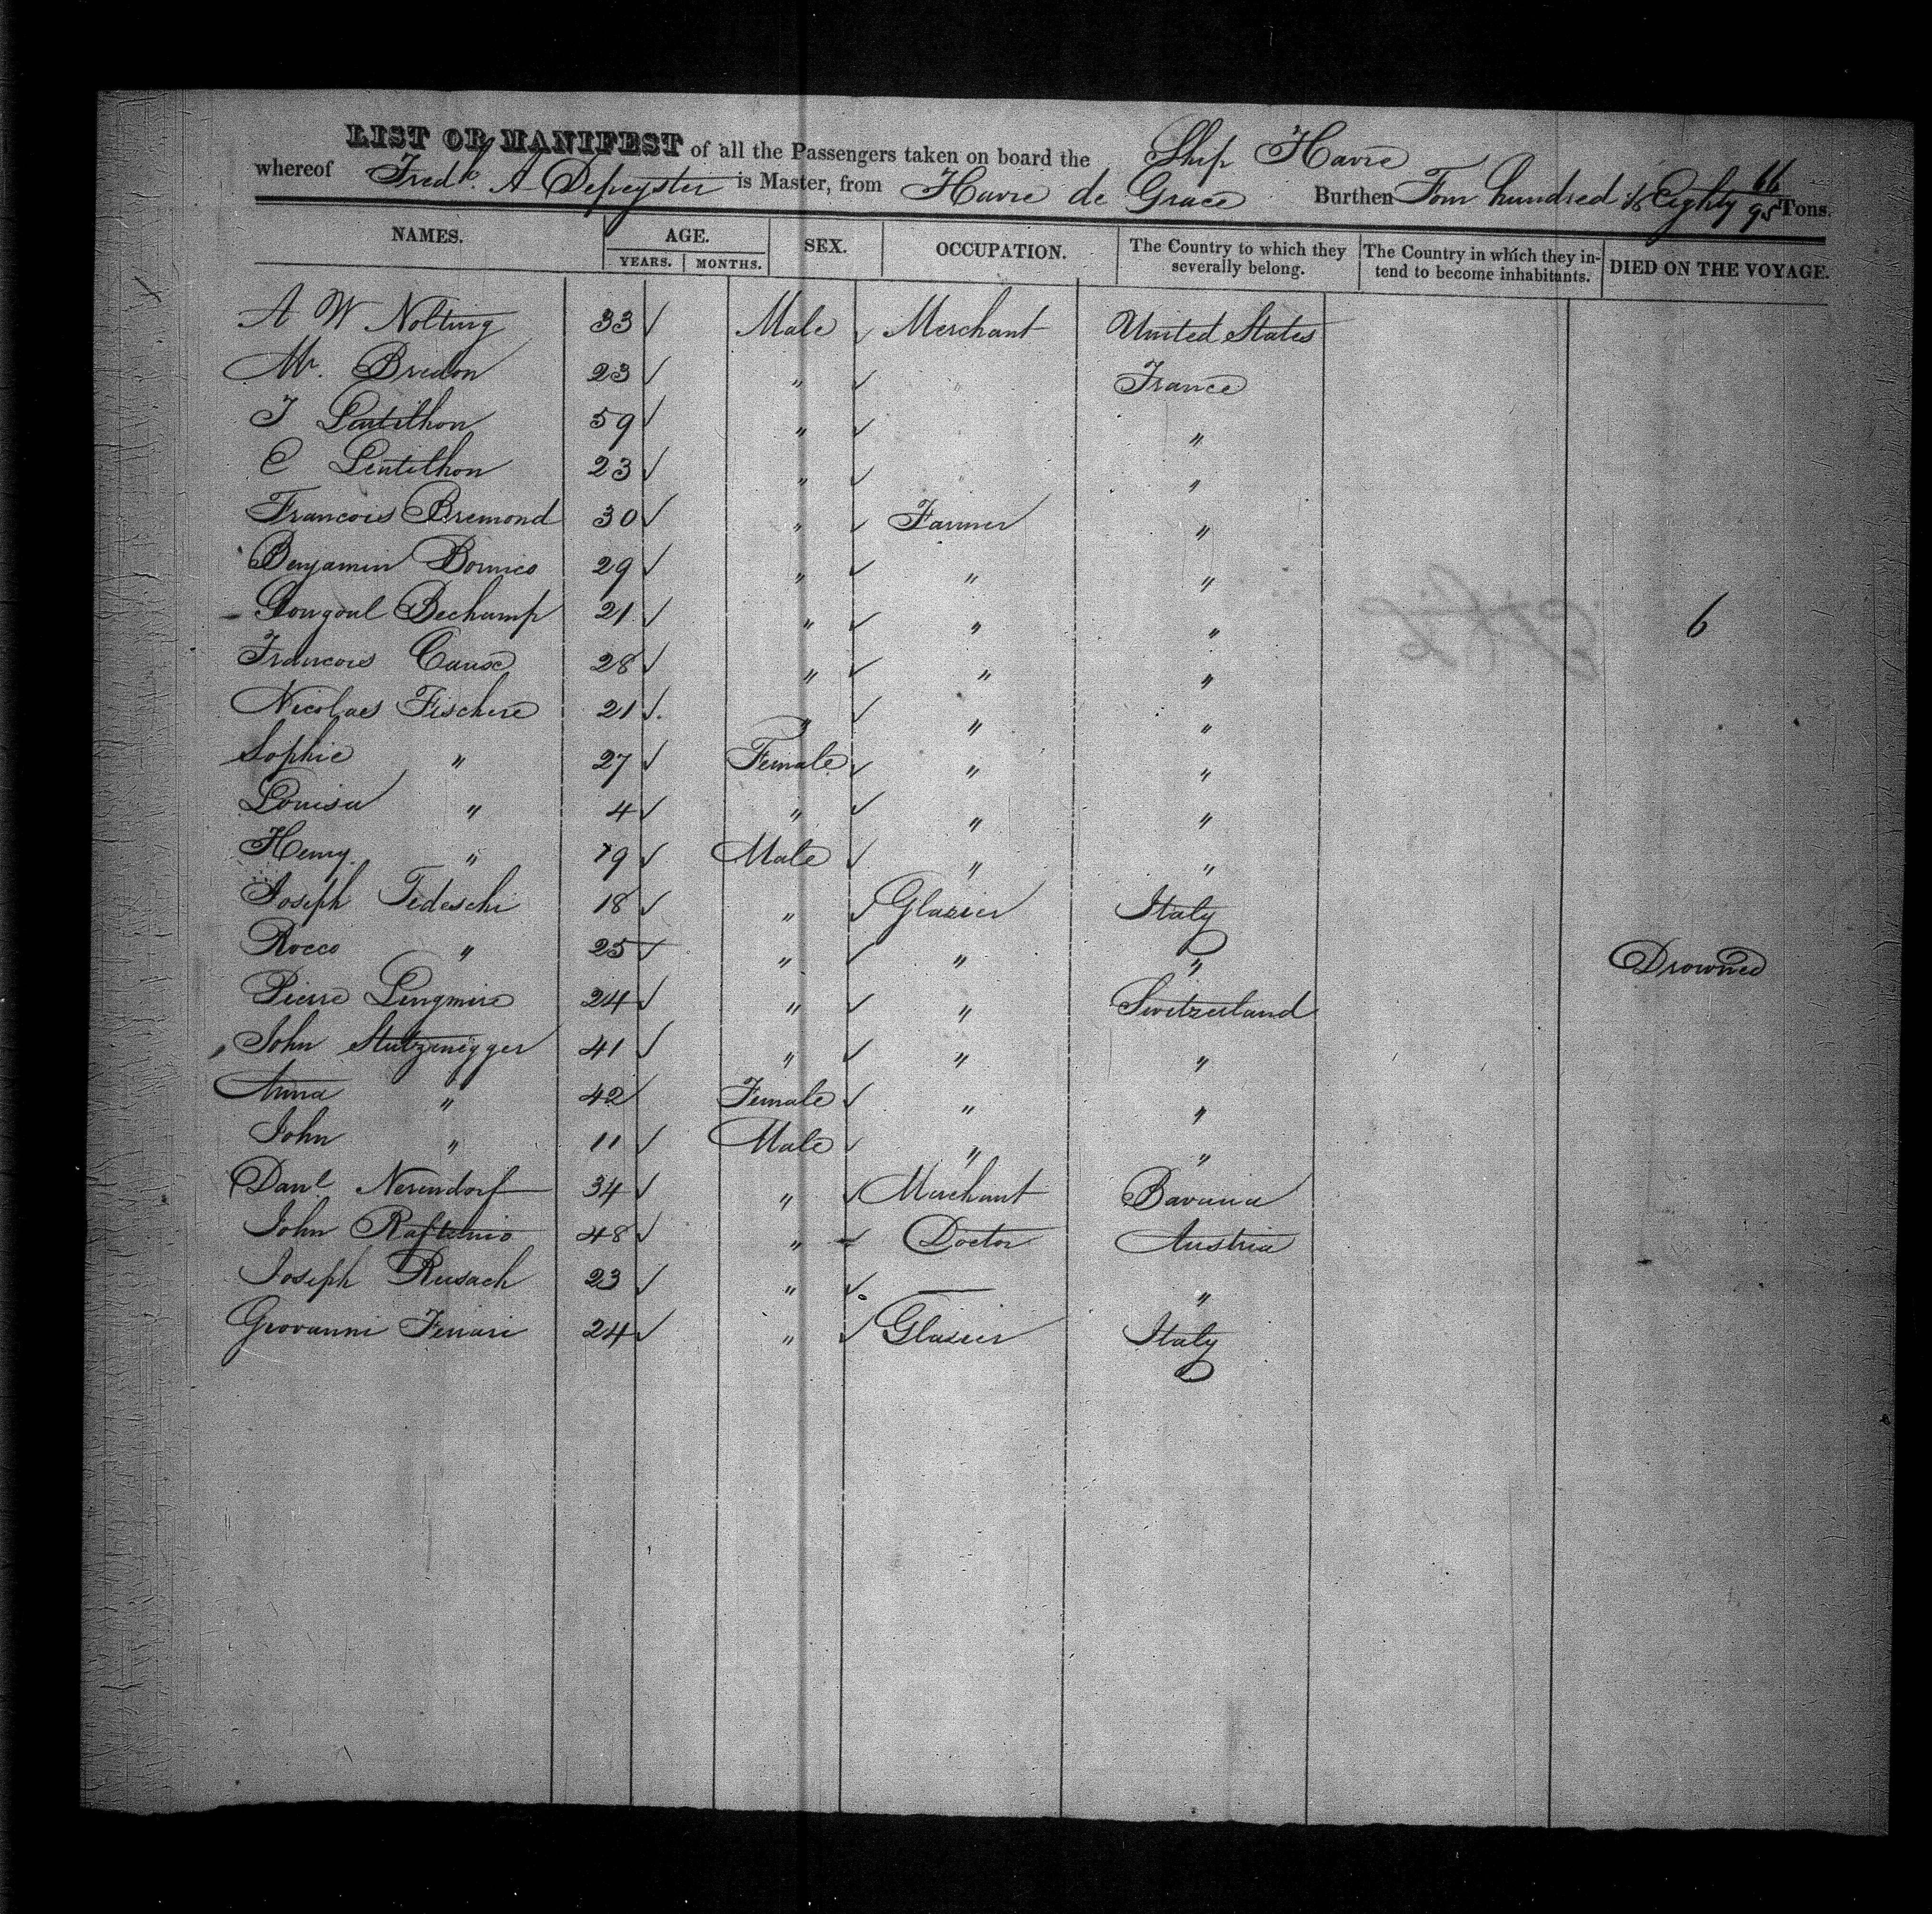 LIST OR MANIFEST of all the Passengers taken on board the Ship Havre
whereof Fredk. A Depeyster is Master, from Havre de Grace Burthen Four hundred & Eighty 66/95 Tons.
NAMES. AGE. SEX. OCCUPATION. The Country to which they severally belong. The Country in which they intend to become inhabitants. DIED ON THE VOYAGE.
YEARS. MONTHS.
A W Nolting 33 Male Merchant United States
Mr. Bredon 23 " France
J Lentilhon 59 " "
C Lentilhon 23 " "
Francois Bremond 30 " Farmer "
Benjamin 29 " " "
Bechamp 21 " " " 6
Francois Cause 28 " " "
Nicolaes Fischere 21 " " "
Sophie " 27 Female " "
Louisa " 4 " " "
Henry " 19 Male " "
Joseph Tedeschi 18 " Glazier Italy
Rocco " 25 " " " Drowned
Pierre Lingmire 24 " " Switzerland
John Stutzenigger 41 " " "
Anna " 42 Female " "
John " 11 Male " "
Danl. Nerendorf 34 " Merchant Bavaria
John 48 " Doctor Austria
Joseph Rusach 23 " — "
Giovanni Ferrari 24 " Glazier Italy